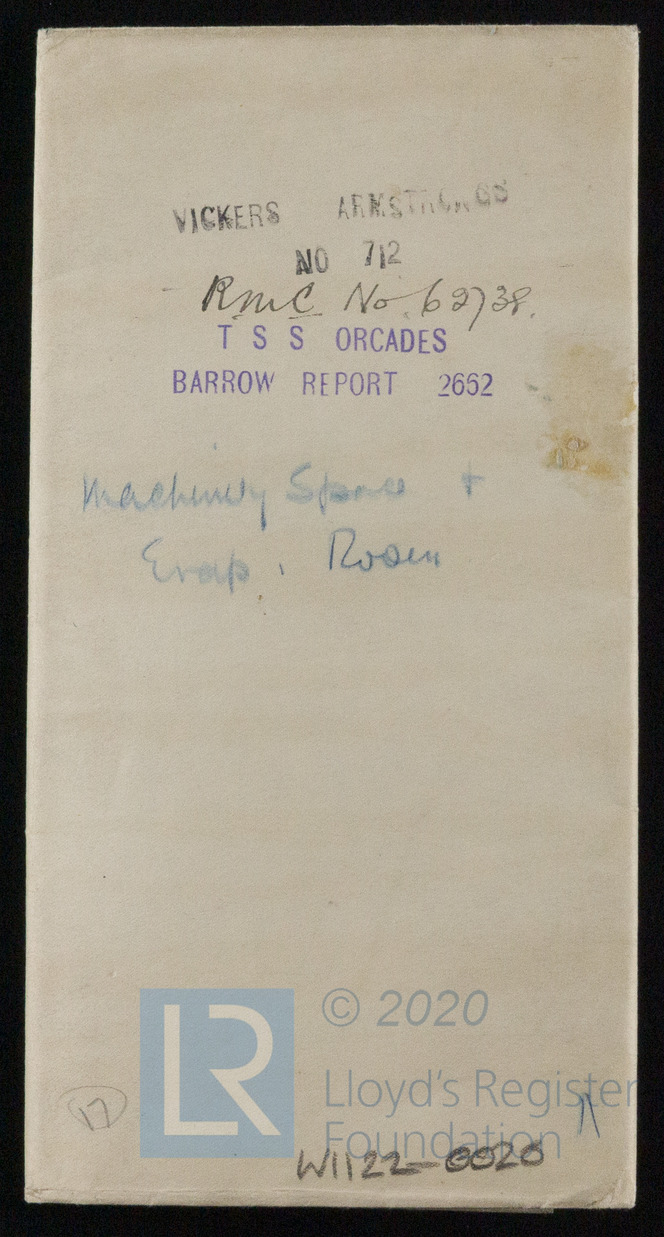 VICKERS ARMSTRONGS
NO 712
RMC No. 62738.
T S S ORCADES
BARROW REPORT 2662
Machinery Space +
Evap.
17
LR
© 2020
Lloyd's Register
Foundation
W1122-0020